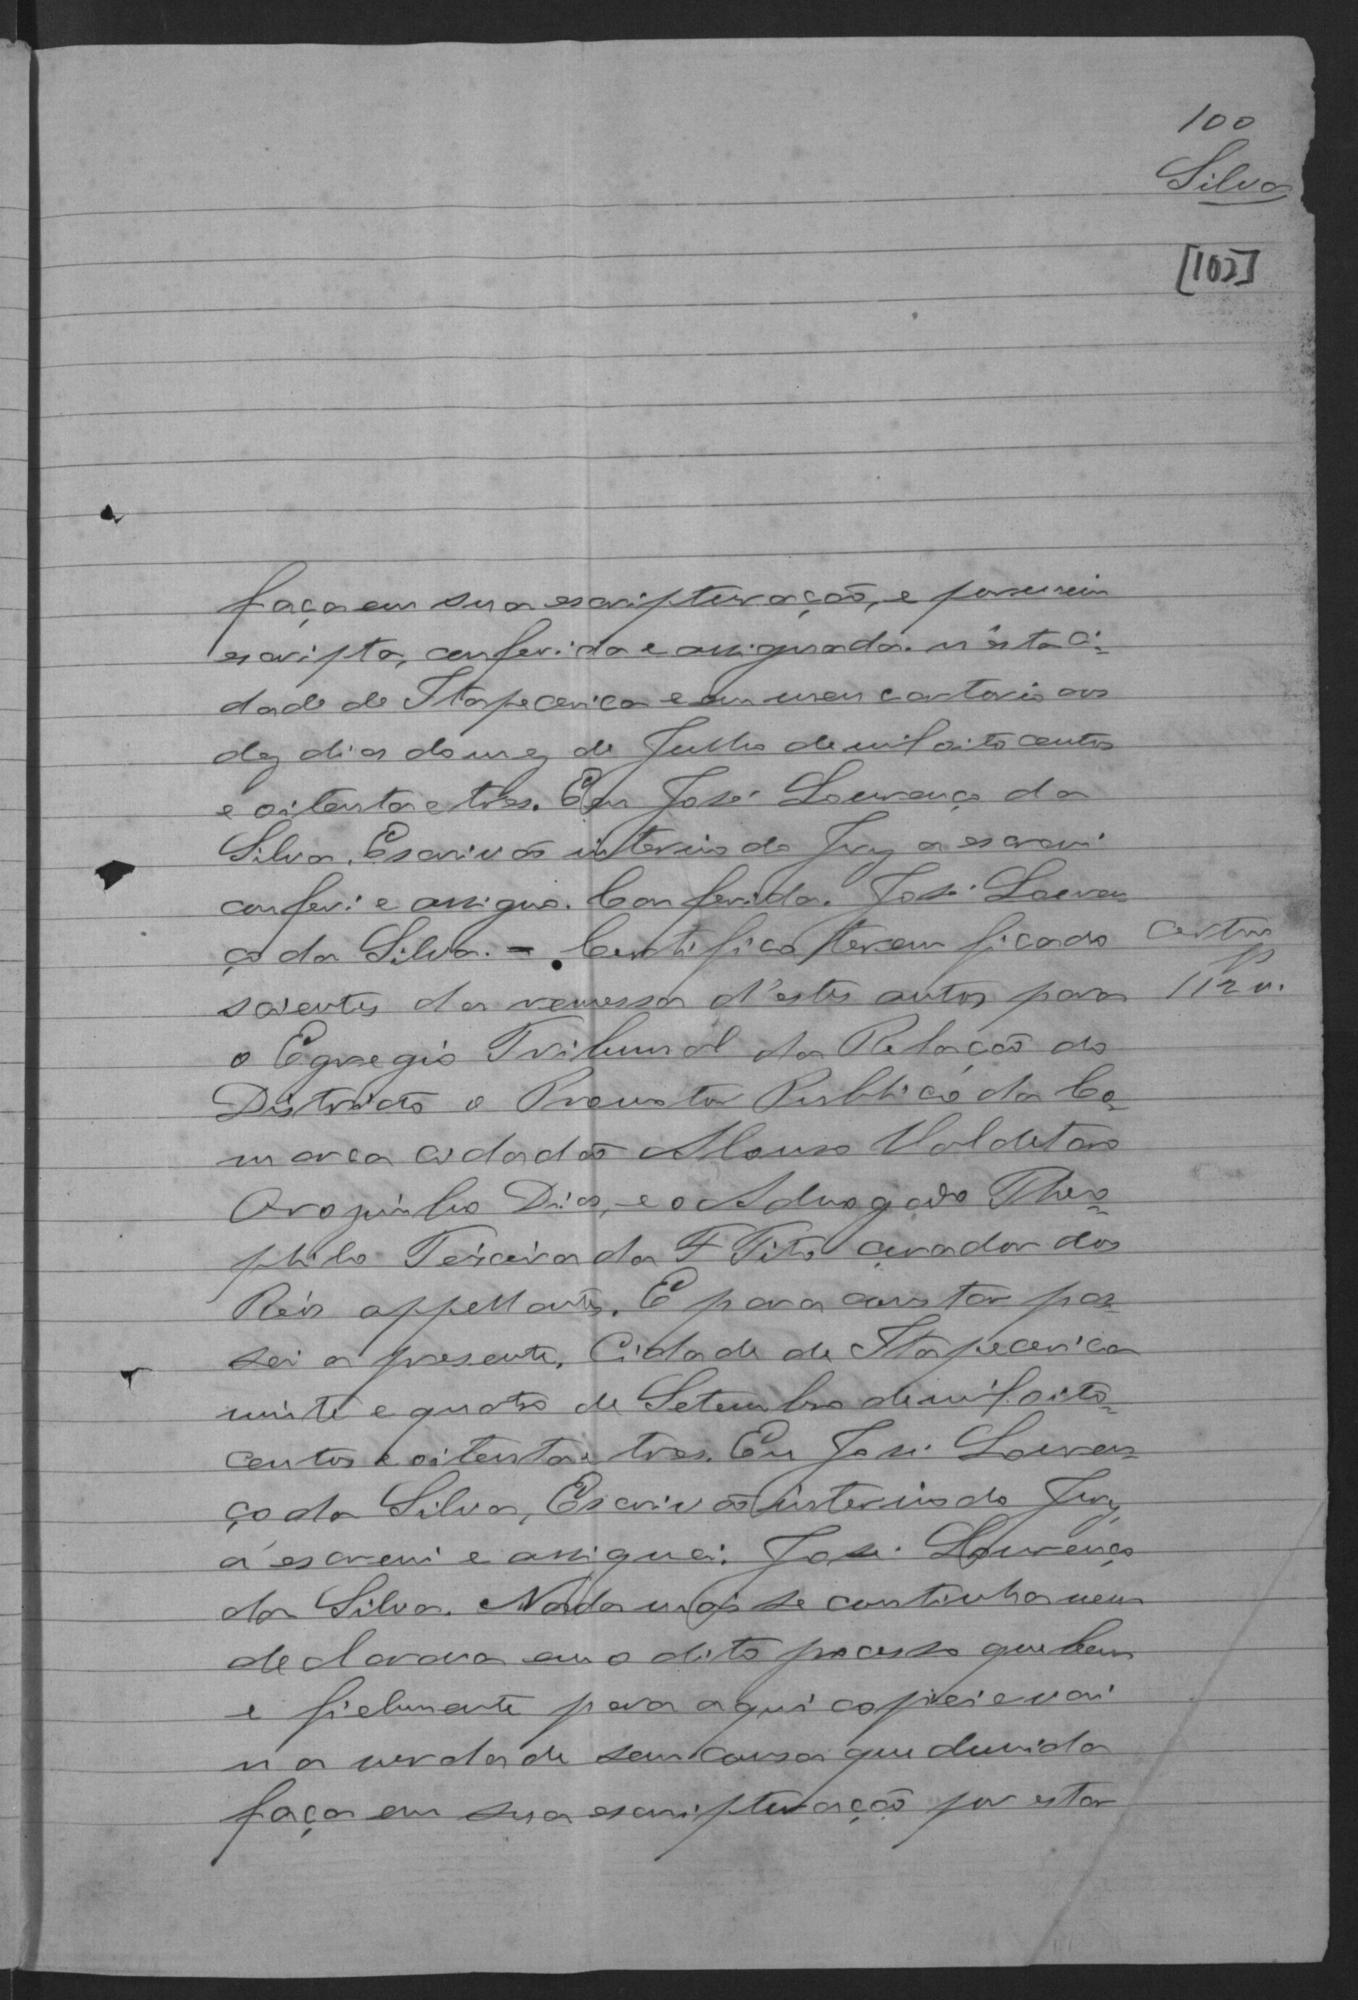 100
Silva
[102]
faça em sua escripturação, e por mim
escripta, conferida e assignada. n'esta ci-
dade de Itapecerica e em meu cartorio aos
dez dias do mez de Julho de mil oito centos
e oitenta e tres. Eu José Lourenço da
Silva, Escrivão interino do Jury a escrevi
conferi e assigno. Conferida. José Louren
ço da Silva. - Certifico terem ficado
scientes da remessa d'estes autos para
o Egregio Tribunal da Relação do
Districto o Promotor Publico da Co-
marca cidadão Alonso Valdetaro
Dias, e o Advogado Theo-
philo Teixeira da F Tito curador dos
Réos appellantes. E para constar pas-
sei a presente. Cidade de Itapecerica
vinte e quatro de Setembro de mil oito-
centos e oitenta e tres. Eu José Louren-
ço da Silva, Escrivão interino do Jury,
a escrevi e assignei. José Lourenço
da Silva. Nada mais se continha nem
declarava em o dito processo que bem
e fielmente para aqui copiei e vai
na verdade sem cousa que duvida
faça em sua escripturação por estar